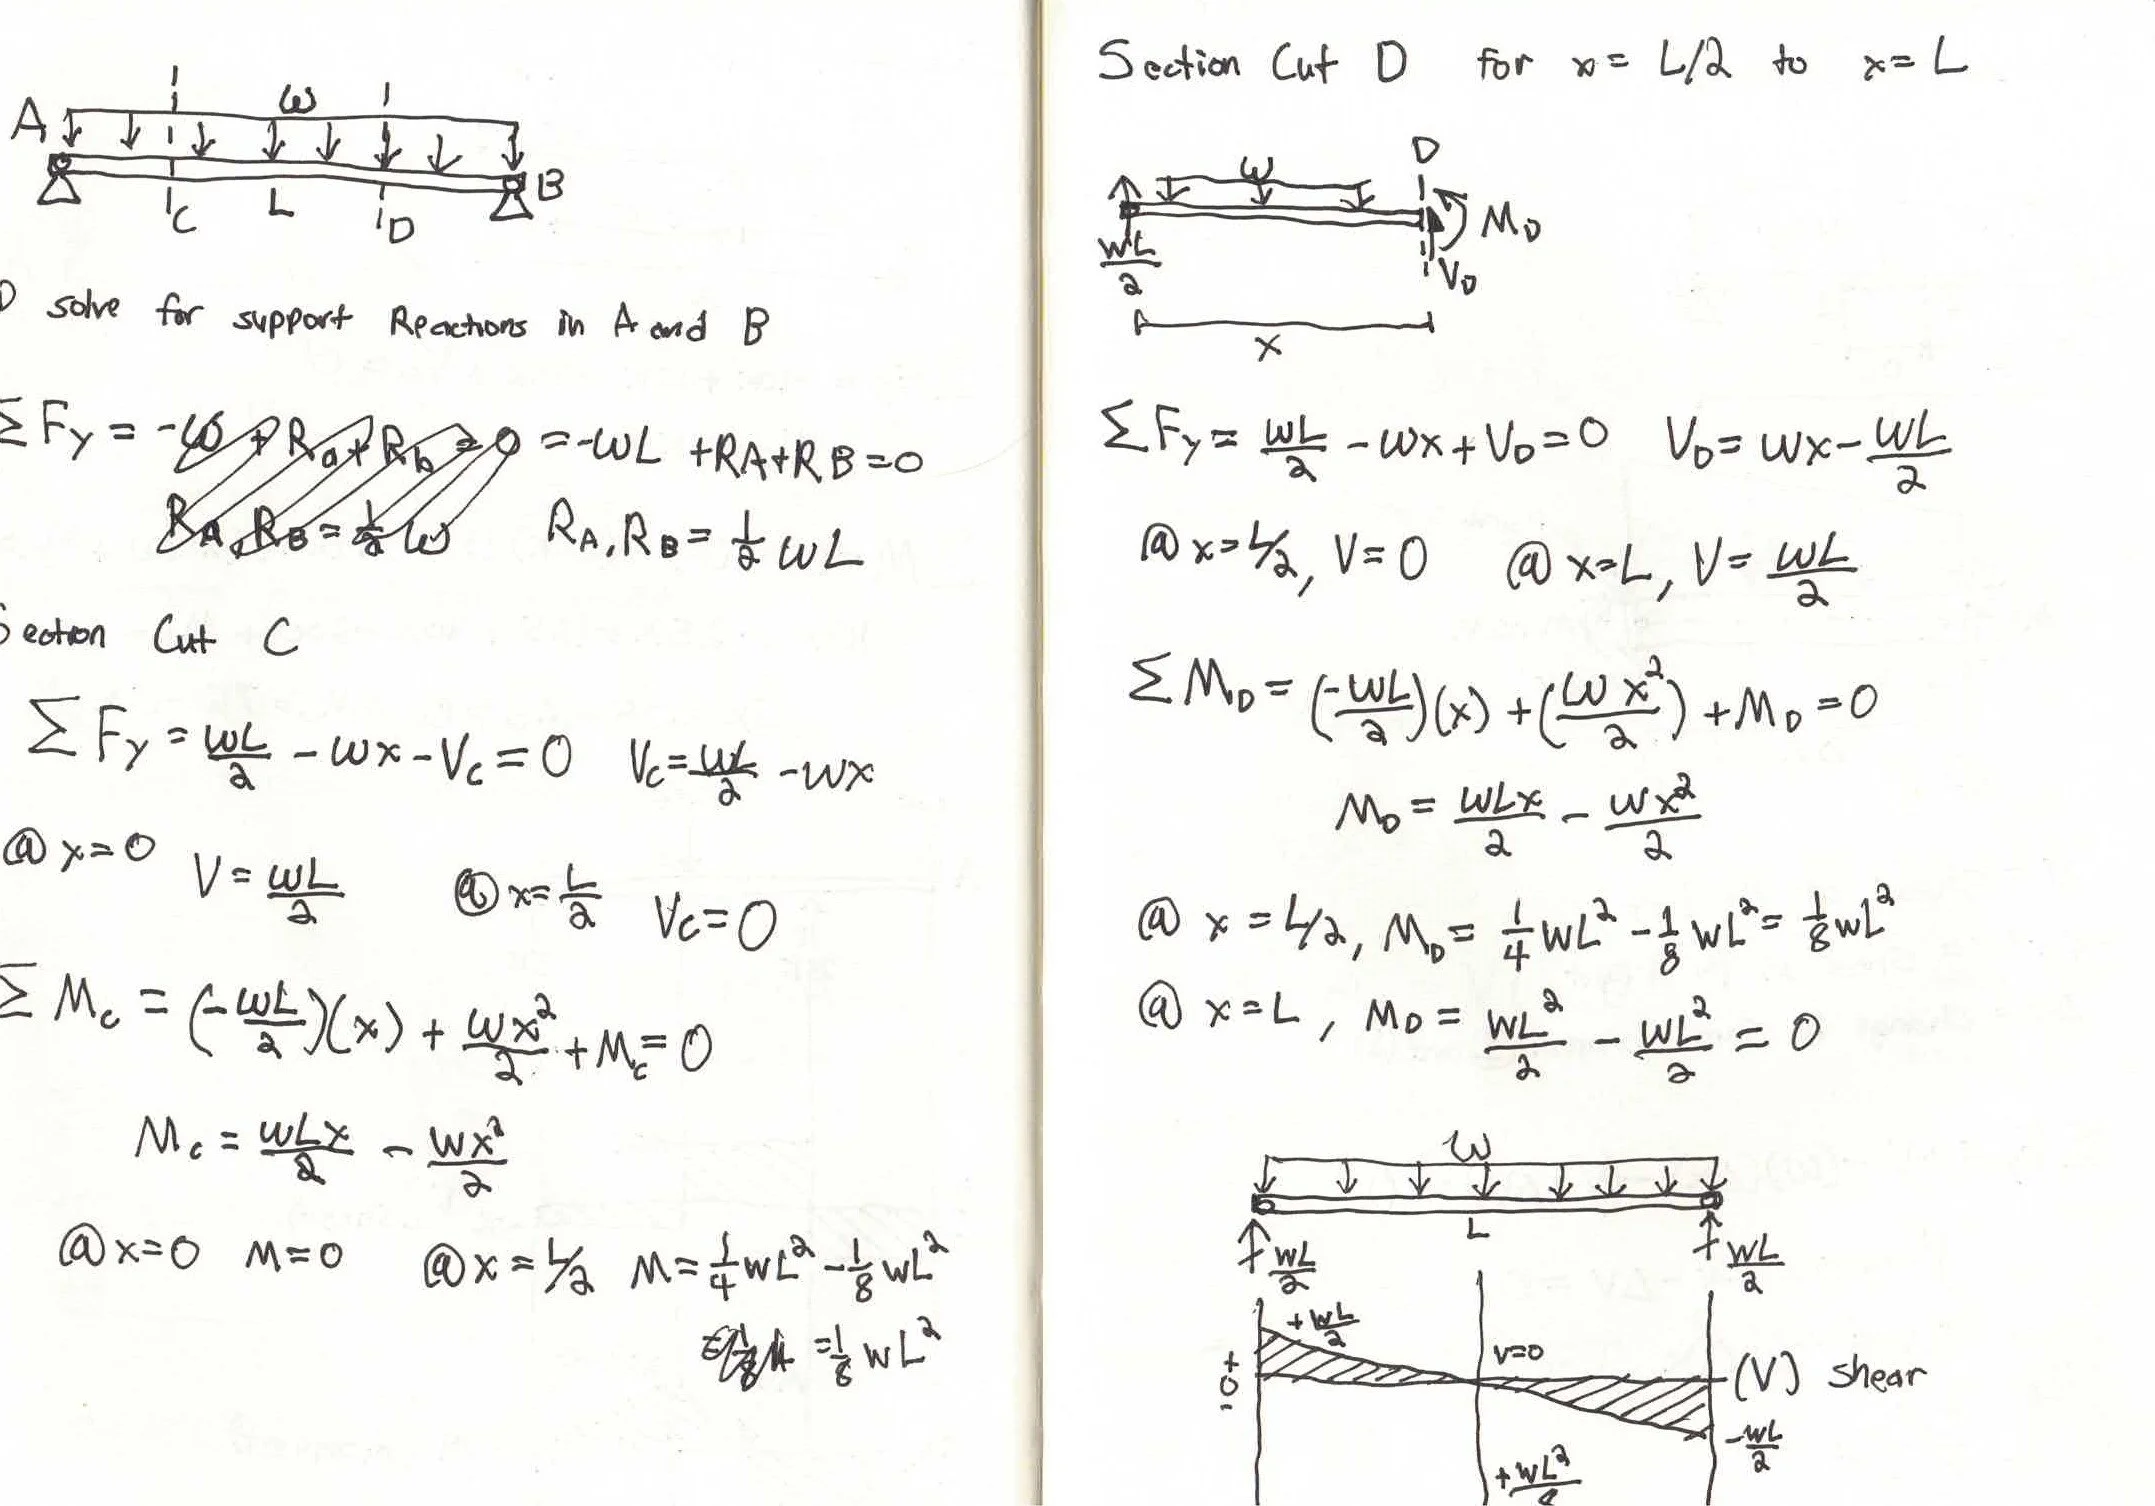 A ω B
C L D
solve for support Reactions in A and B
ΣFy = -ω + Ra + Rb = 0 = -ωL + RA + RB = 0
RA, RB = 1/2 ω RA, RB = 1/2 ωL
Section Cut C
ΣFy = ωL/2 - ωx - Vc = 0 Vc = ωL/2 - ωx
@ x=0 V = ωL/2 @ x = L/2 Vc = 0
ΣMc = (-ωL/2)(x) + ωx²/2 + Mc = 0
Mc = ωLx/2 - wx²/2
@ x=0 M=0 @ x = L/2 M = 1/4 wL² - 1/8 wL²
= 1/8 wL²
Section Cut D for x = L/2 to x = L
ω D
MD
wL/2 VD
x
ΣFy = ωL/2 - ωx + VD = 0 VD = ωx - ωL/2
@ x = L/2, V = 0 @ x = L, V = ωL/2
ΣMD = (-ωL/2)(x) + (ωx²/2) + MD = 0
MD = ωLx/2 - ωx²/2
@ x = L/2, MD = 1/4 wL² - 1/8 wL² = 1/8 wL²
@ x = L, MD = WL²/2 - WL²/2 = 0
ω
L
WL/2 WL/2
+WL/2
+ 0 - V=0 (V) shear
-WL/2
+WL²/8